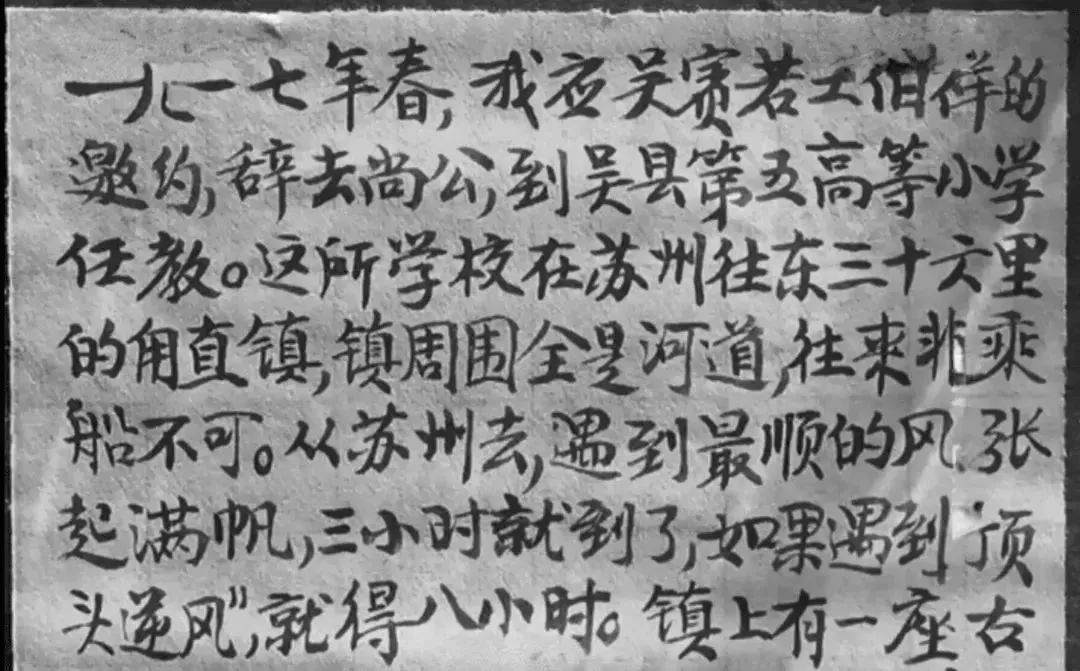 一九一七年春，我应吴宾若王伯祥的
邀约，辞去尚公，到吴县第五高等小学
任教。这所学校在苏州往东三十六里
的甪直镇，镇周围全是河道，往来非乘
船不可。从苏州去，遇到最顺的风，张
起满帆，三小时就到了，如果遇到“顶
头逆风”，就得八小时。镇上有一座古